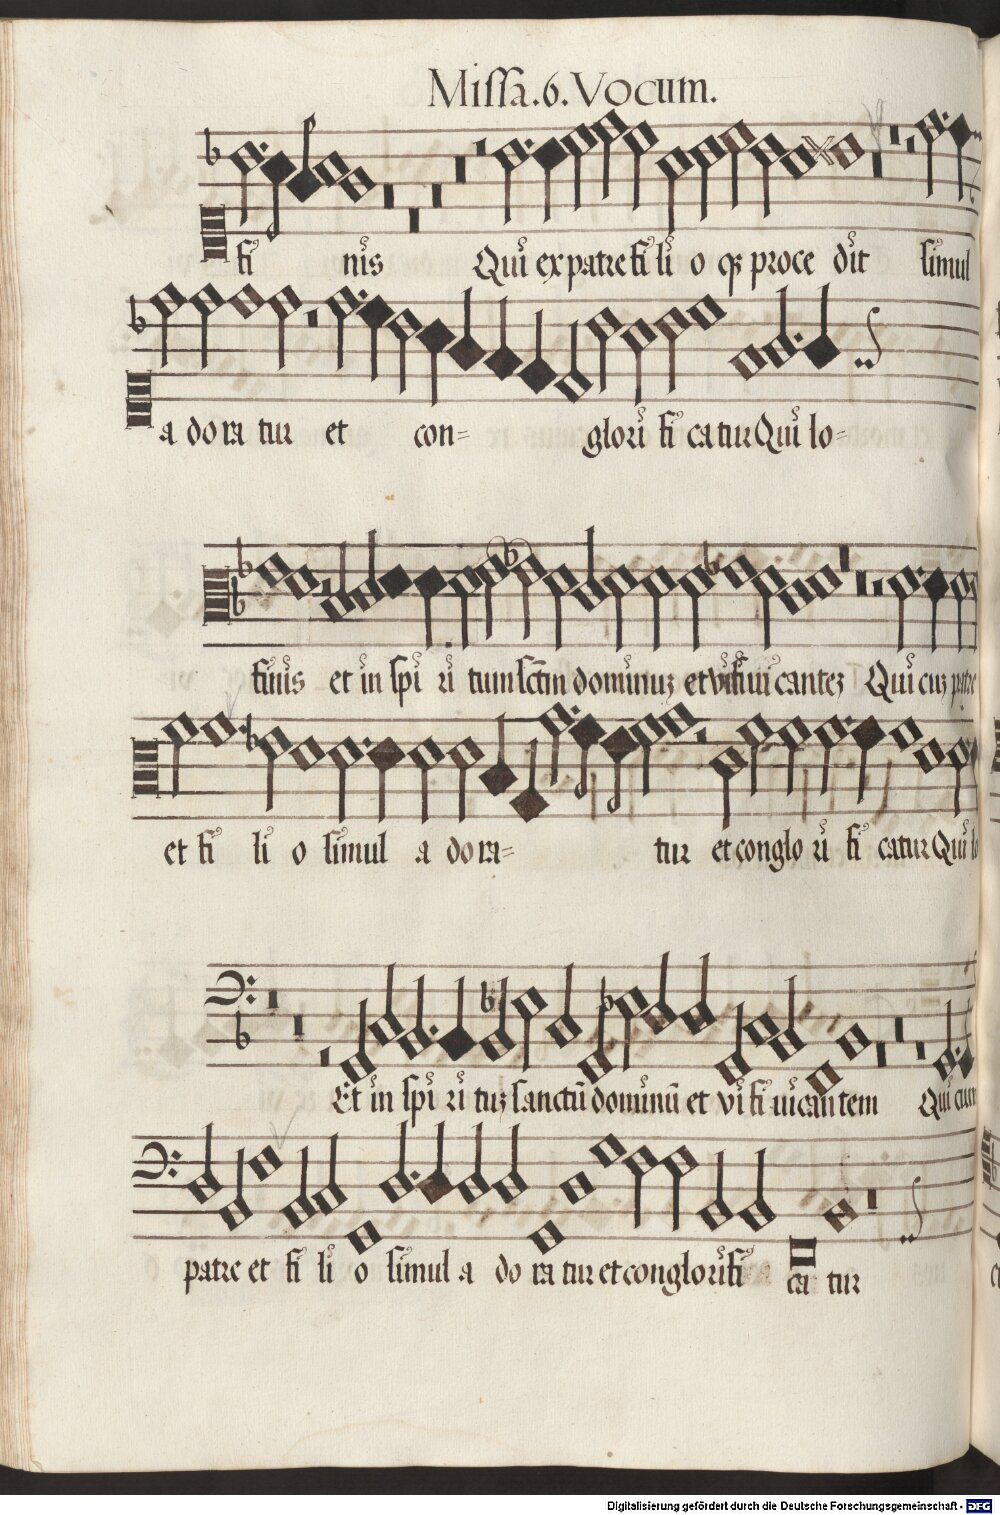 Missa.6.Vocum.
fi nis Qui ex patre fi li o q3 proce dit simul
a do ra tur et con= glori fi ca tur Qui lo=
finis et in spi ri tum sctm dominu3 et vi fi cante3 Qui cu3 patre
et fi li o simul a do ra= tur et conglo ri fi catur Qui lo
Et in spi ri tu3 sanctū dominū et vi fi uicantem Qui cum
patre et fi li o simul a do ra tur et conglorifi ca tur
Digitalisierung gefördert durch die Deutsche Forschungsgemeinschaft - DFG